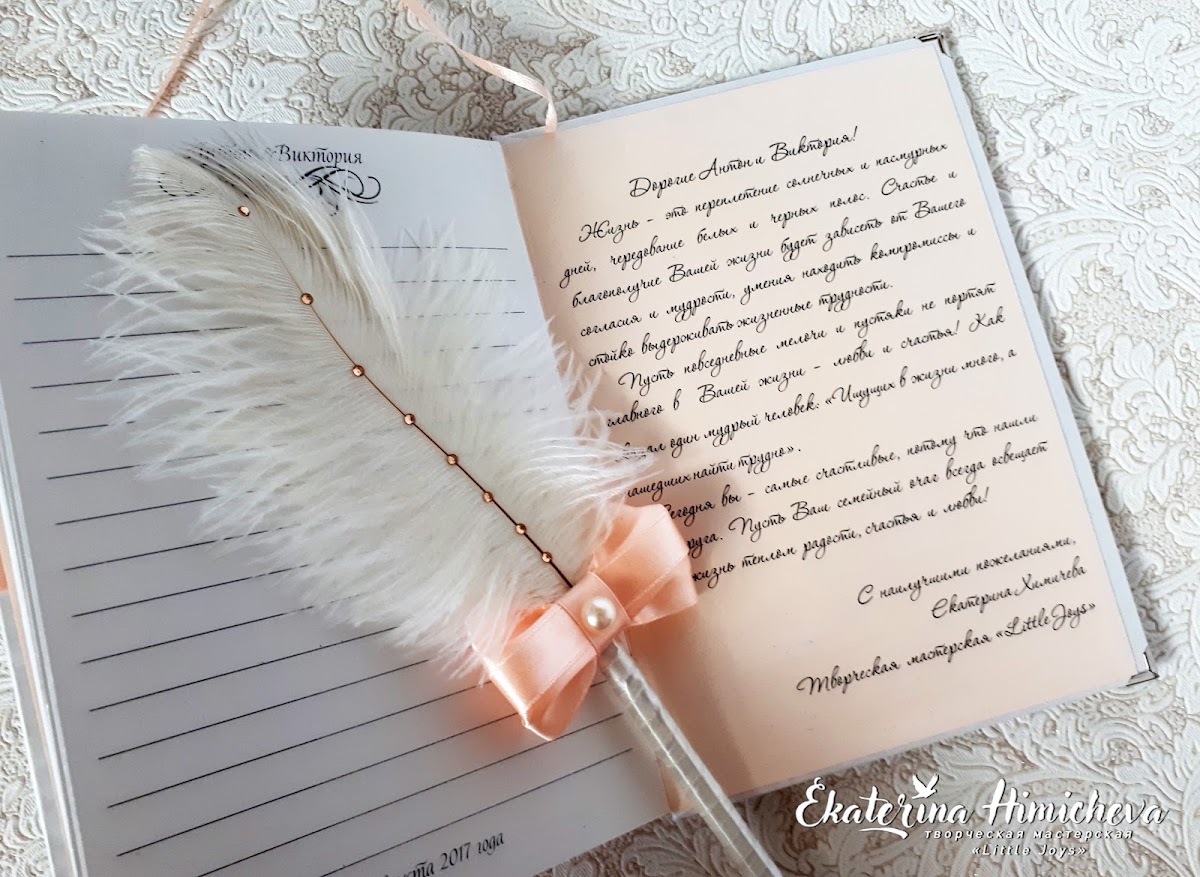 Виктория
2017 года
Дорогие Антон и Виктория!
Жизнь – это переплетение солнечных и пасмурных
дней, чередование белых и черных полос. Счастье и
благополучие Вашей жизни будет зависеть от Вашего
согласия и мудрости, умения находить компромиссы и
стойко выдерживать жизненные трудности.
Пусть повседневные мелочи и пустяки не портят
главного в Вашей жизни – любви и счастья! Как
один мудрый человек: «Ищущих в жизни много, а
нашедших найти трудно».
Сегодня вы – самые счастливые, потому что нашли
Пусть Ваш семейный очаг всегда освещает
жизнь теплом, радости, счастья и любви!
С наилучшими пожеланиями,
Екатерина Химичева
Творческая мастерская «Little Joys»
Ekaterina Himicheva
творческая мастерская
«Little Joys»